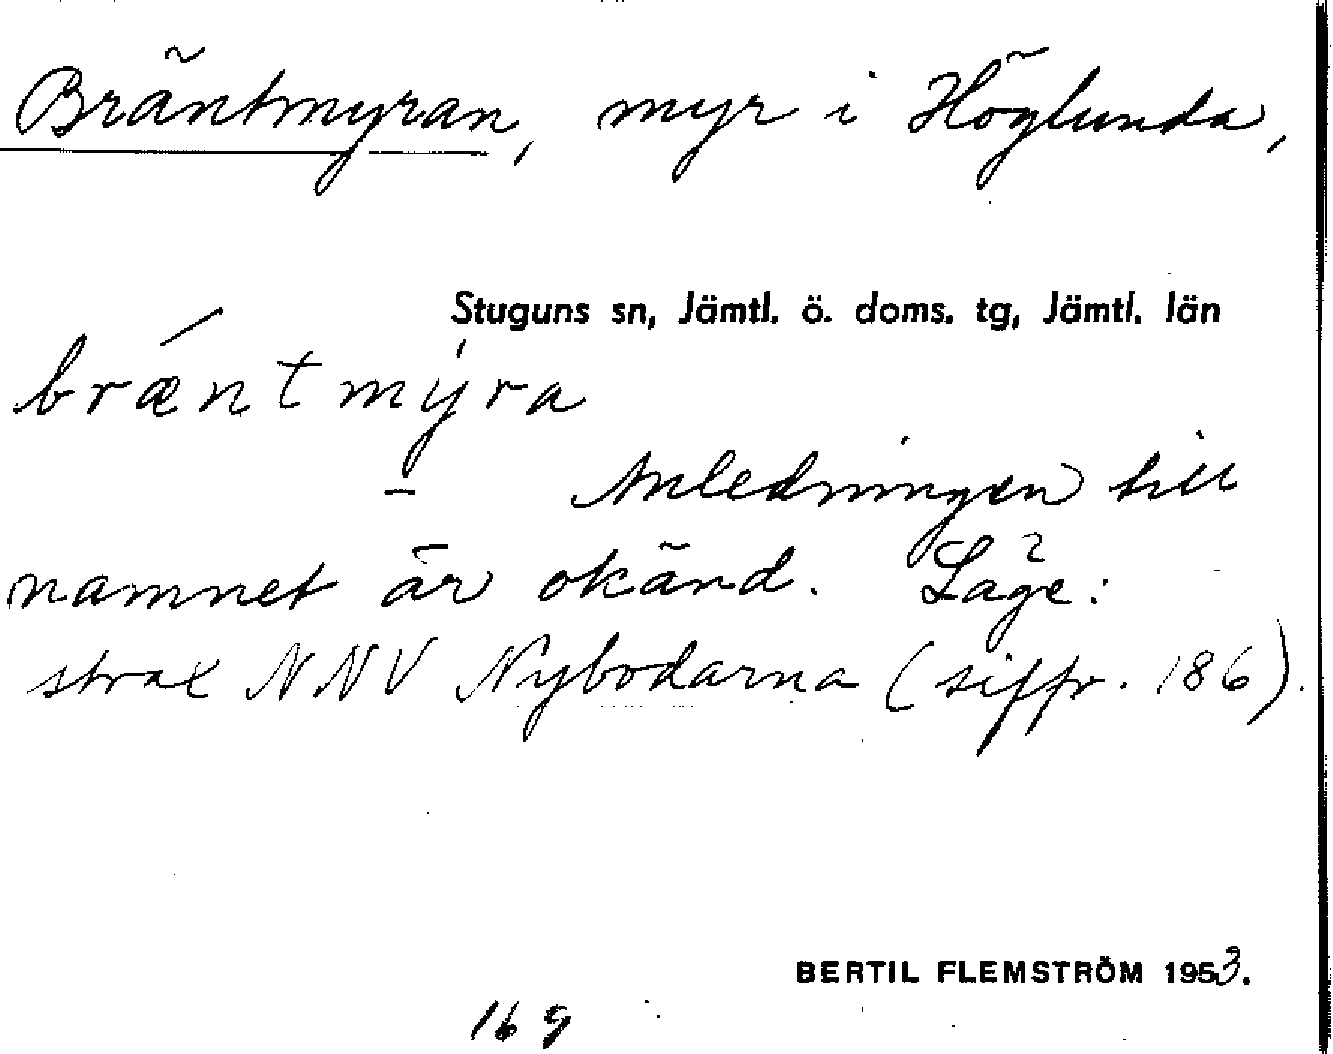 Bräntmyran, myr i Höglunda,
Stuguns sn, Jämtl. ö. doms. tg, Jämtl. län
brǽntmýra
Anledningen till
namnet är okänd. Läge:
strax NNV Nybodarna (siffr. 186).
BERTIL FLEMSTRÖM 1953.
169